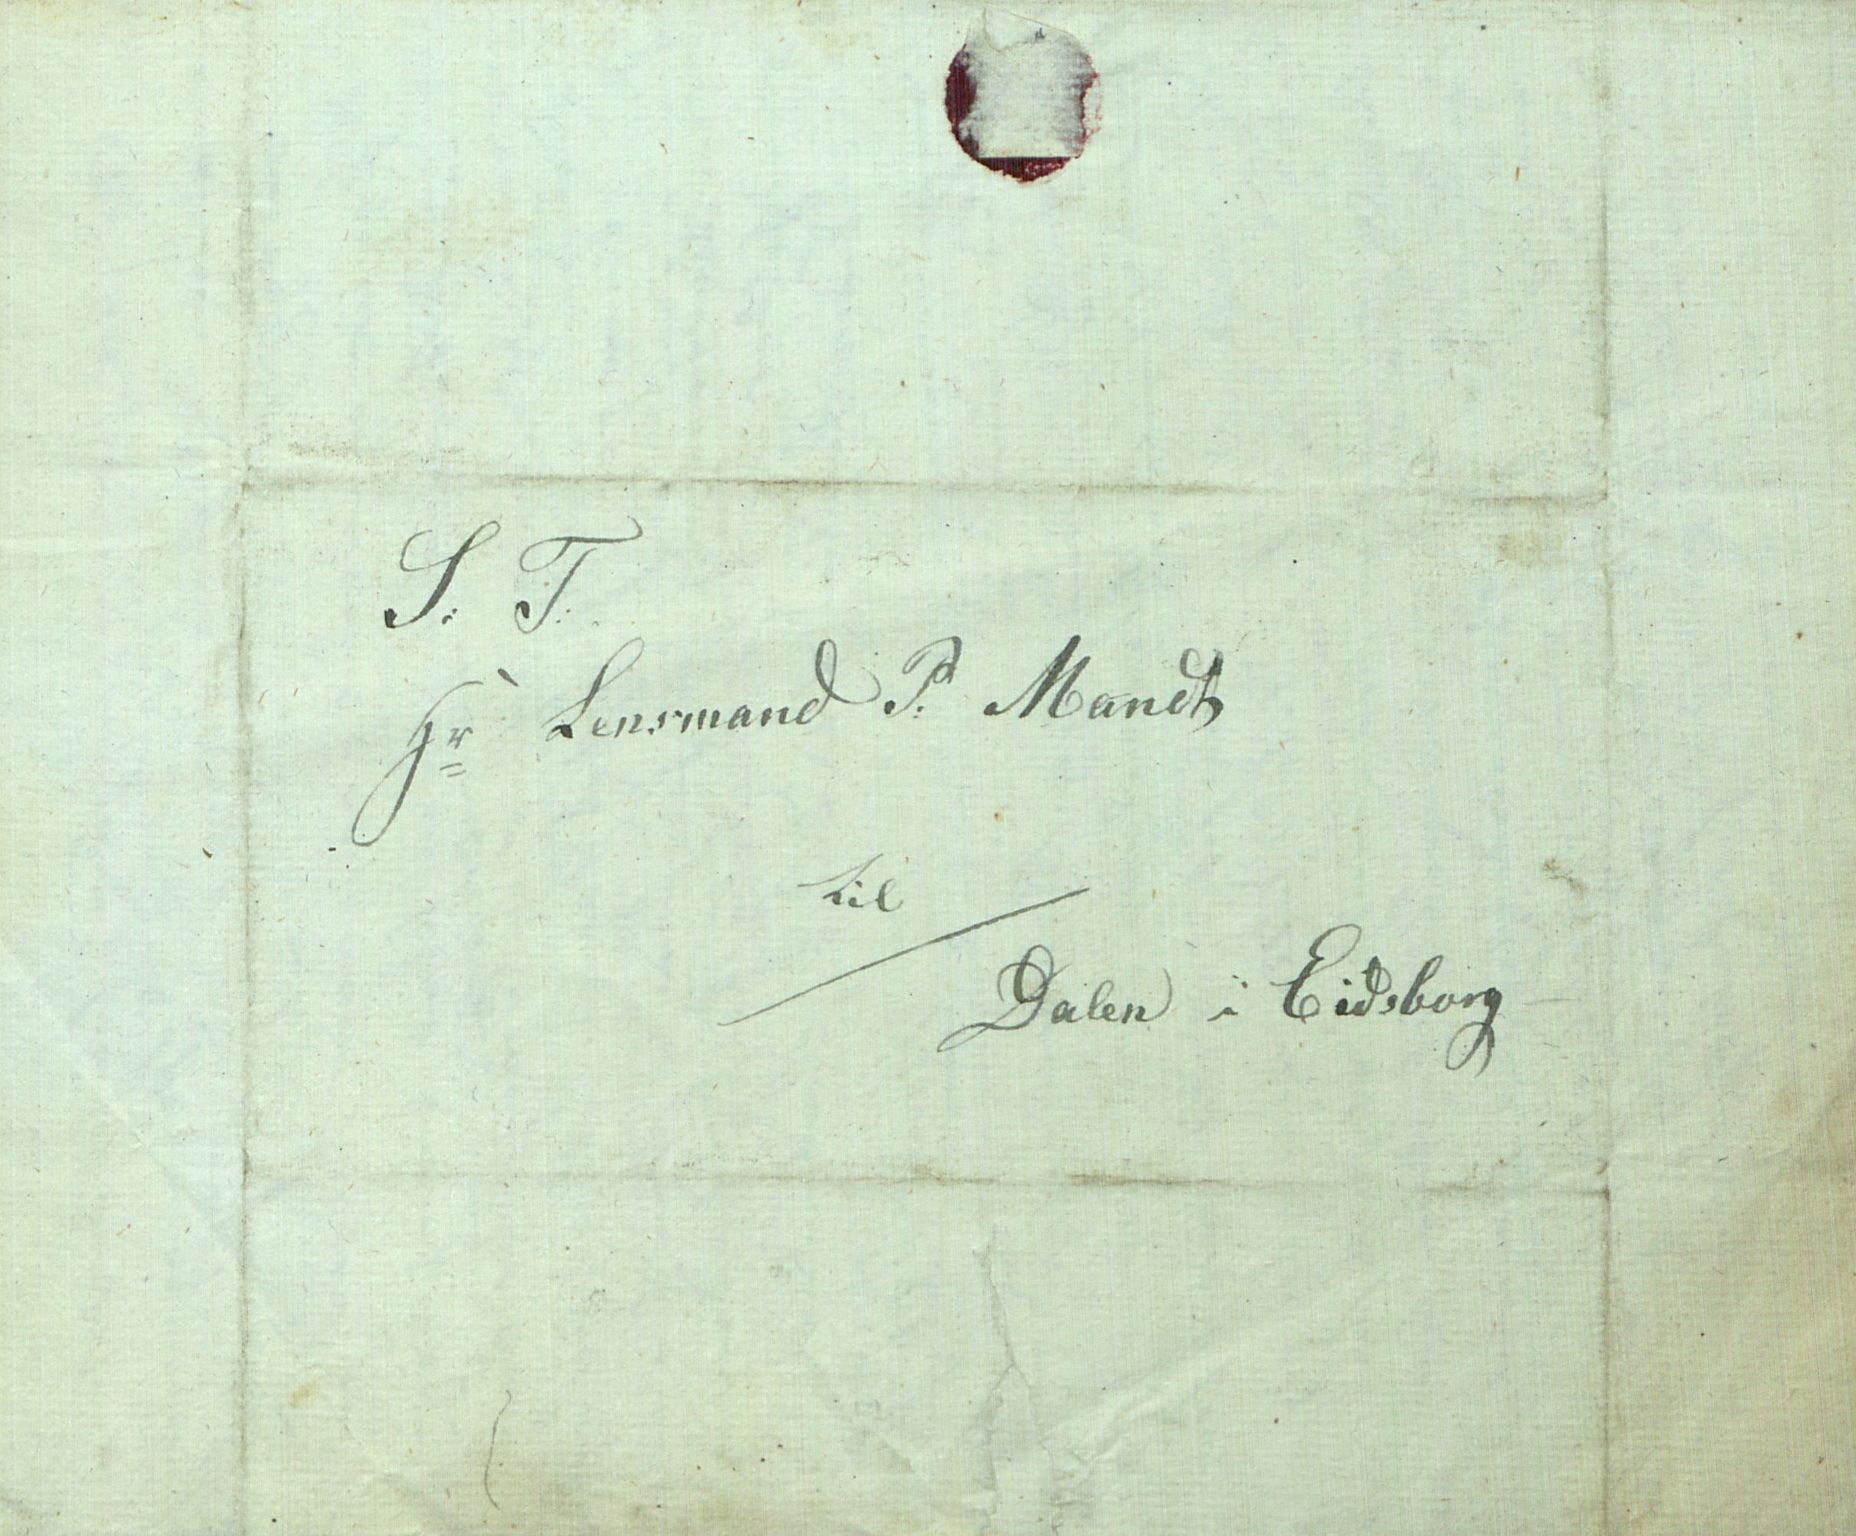 S. T.
Hr Lensmand P. Mandt
til
Dalen i Eidsborg